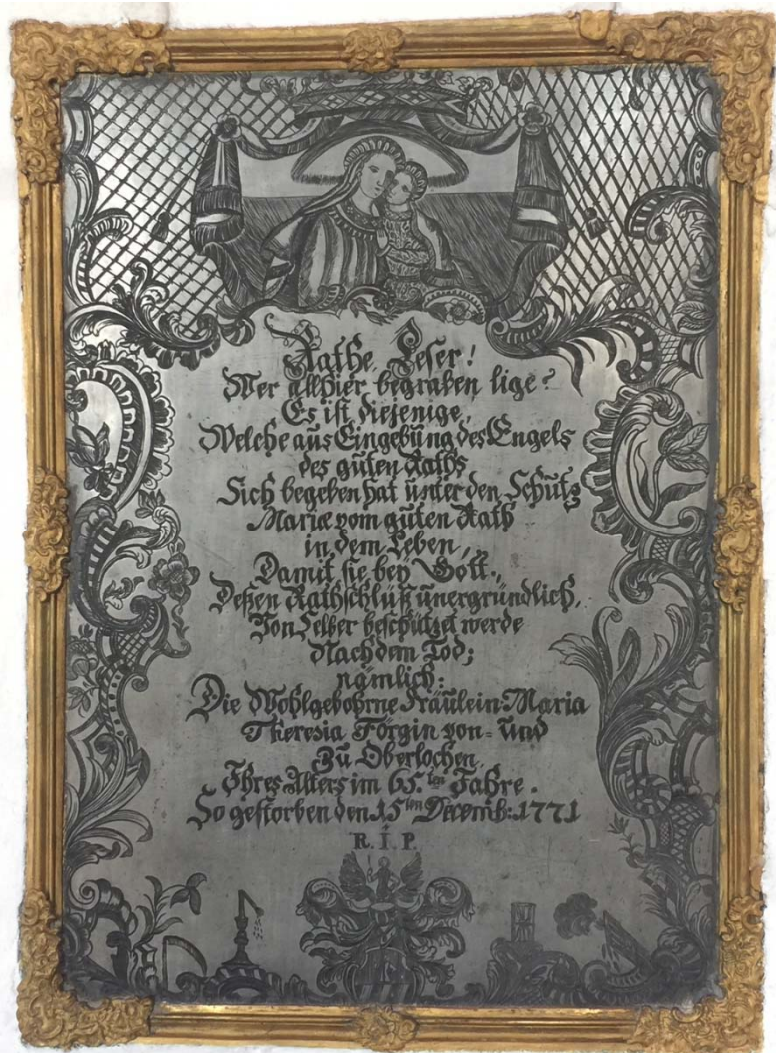 Rathe Leser!
Wer allhier begraben lige?
Es ist diejenige,
Welche aus Eingebung des Engels
des guten Raths
Sich begeben hat unter den Schutz
Mariæ vom guten Rath
in dem Leben,
Damit sie bey Gott,
Deßen Rathschluß unergründlich,
Von selber beschützet werde
Nach dem Tod;
nämlich:
Die Wohlgebohrne Fräulein Maria
Theresia Förgin von= und
Zu Oberlochen
Ihres Alters im 65.ten Jahre.
So gestorben den 15ten Decemb: 1771
R. I. P.